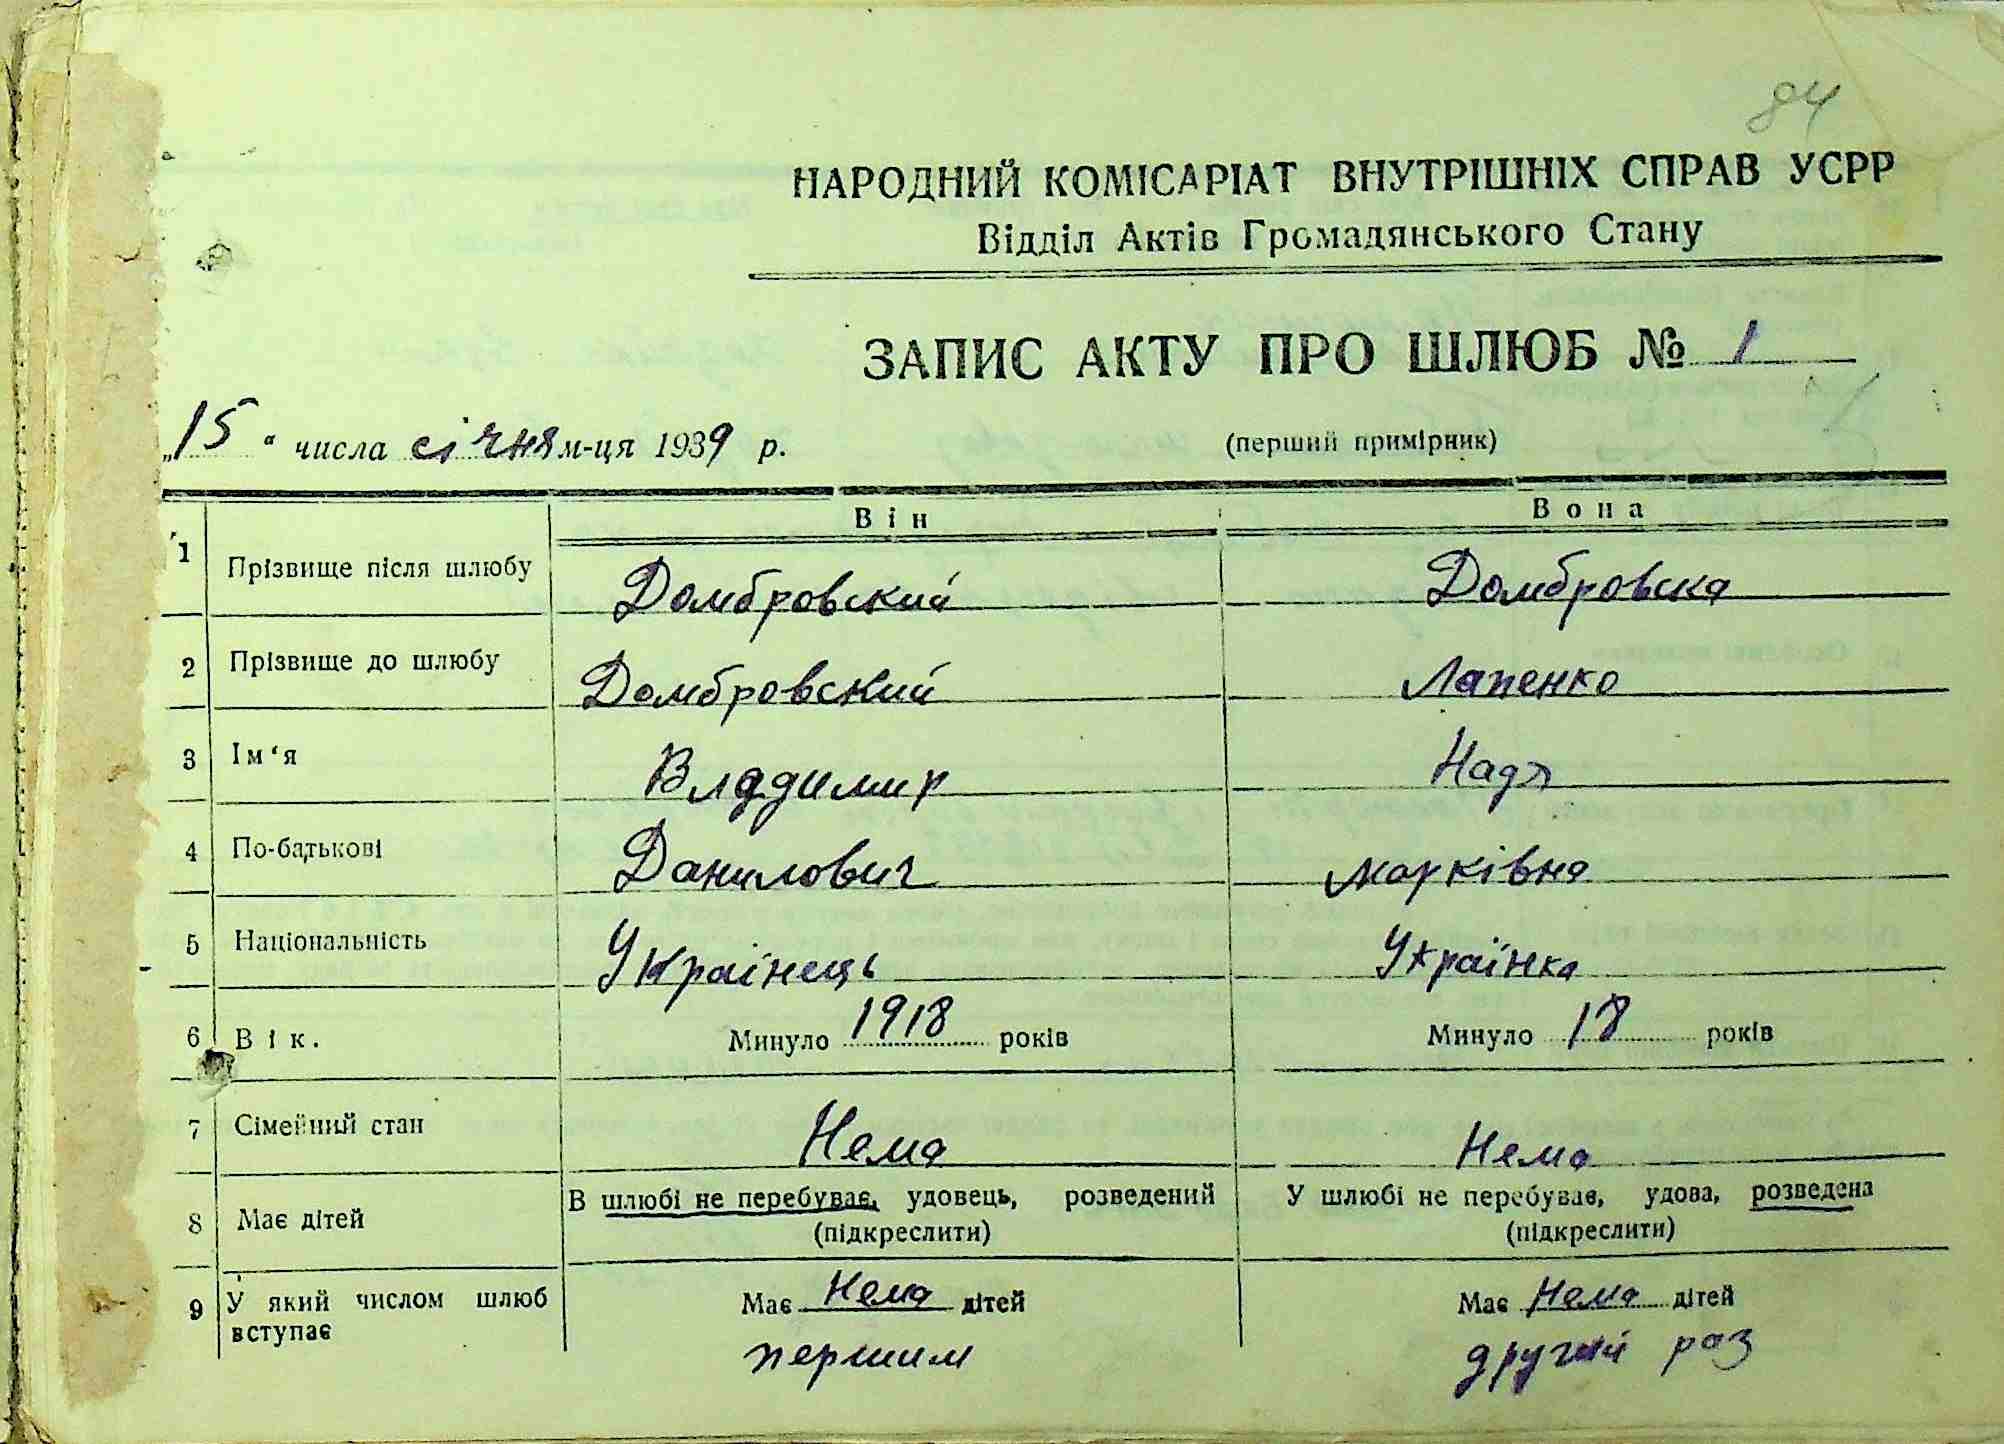 84
НАРОДНИЙ КОМІСАРІАТ ВНУТРІШНІХ СПРАВ УСРР
Відділ Актів Громадянського Стану
ЗАПИС АКТУ ПРО ШЛЮБ № 1
„15“ числа січня м-ця 1939 р. (перший примірник)
Він Вона
1 Прізвище після шлюбу Домбровский Домбровска
2 Прізвище до шлюбу Домбровский Лапенко
3 Ім‘я Владимир Надя
4 По-батькові Данилович Марківна
5 Національність Украінець Українка
6 Вік. Минуло 1918 років Минуло 18 років
7 Сімейний стан Нема Нема
8 Має дітей В шлюбі не перебуває, удовець, розведений У шлюбі не перебував, удова, розведена
(підкреслити) (підкреслити)
9 У який числом шлюб вступає Має Нема дітей Має Нема дітей
першим другий раз